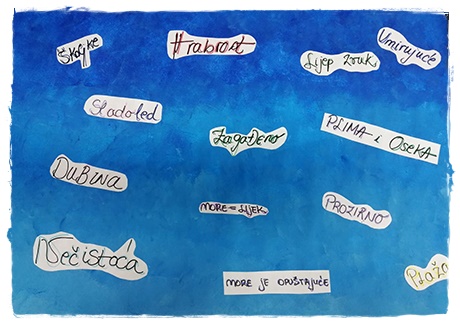 Školjke
Hrabrost
Lijep zvuk
Umirujuće
Sladoled
Zagađeno
PLIMA i OSEKA
DUBINA
MORE = LIJEK
PROZIRNO
Nečistoća
MORE JE OPUŠTAJUĆE
PLAŽA